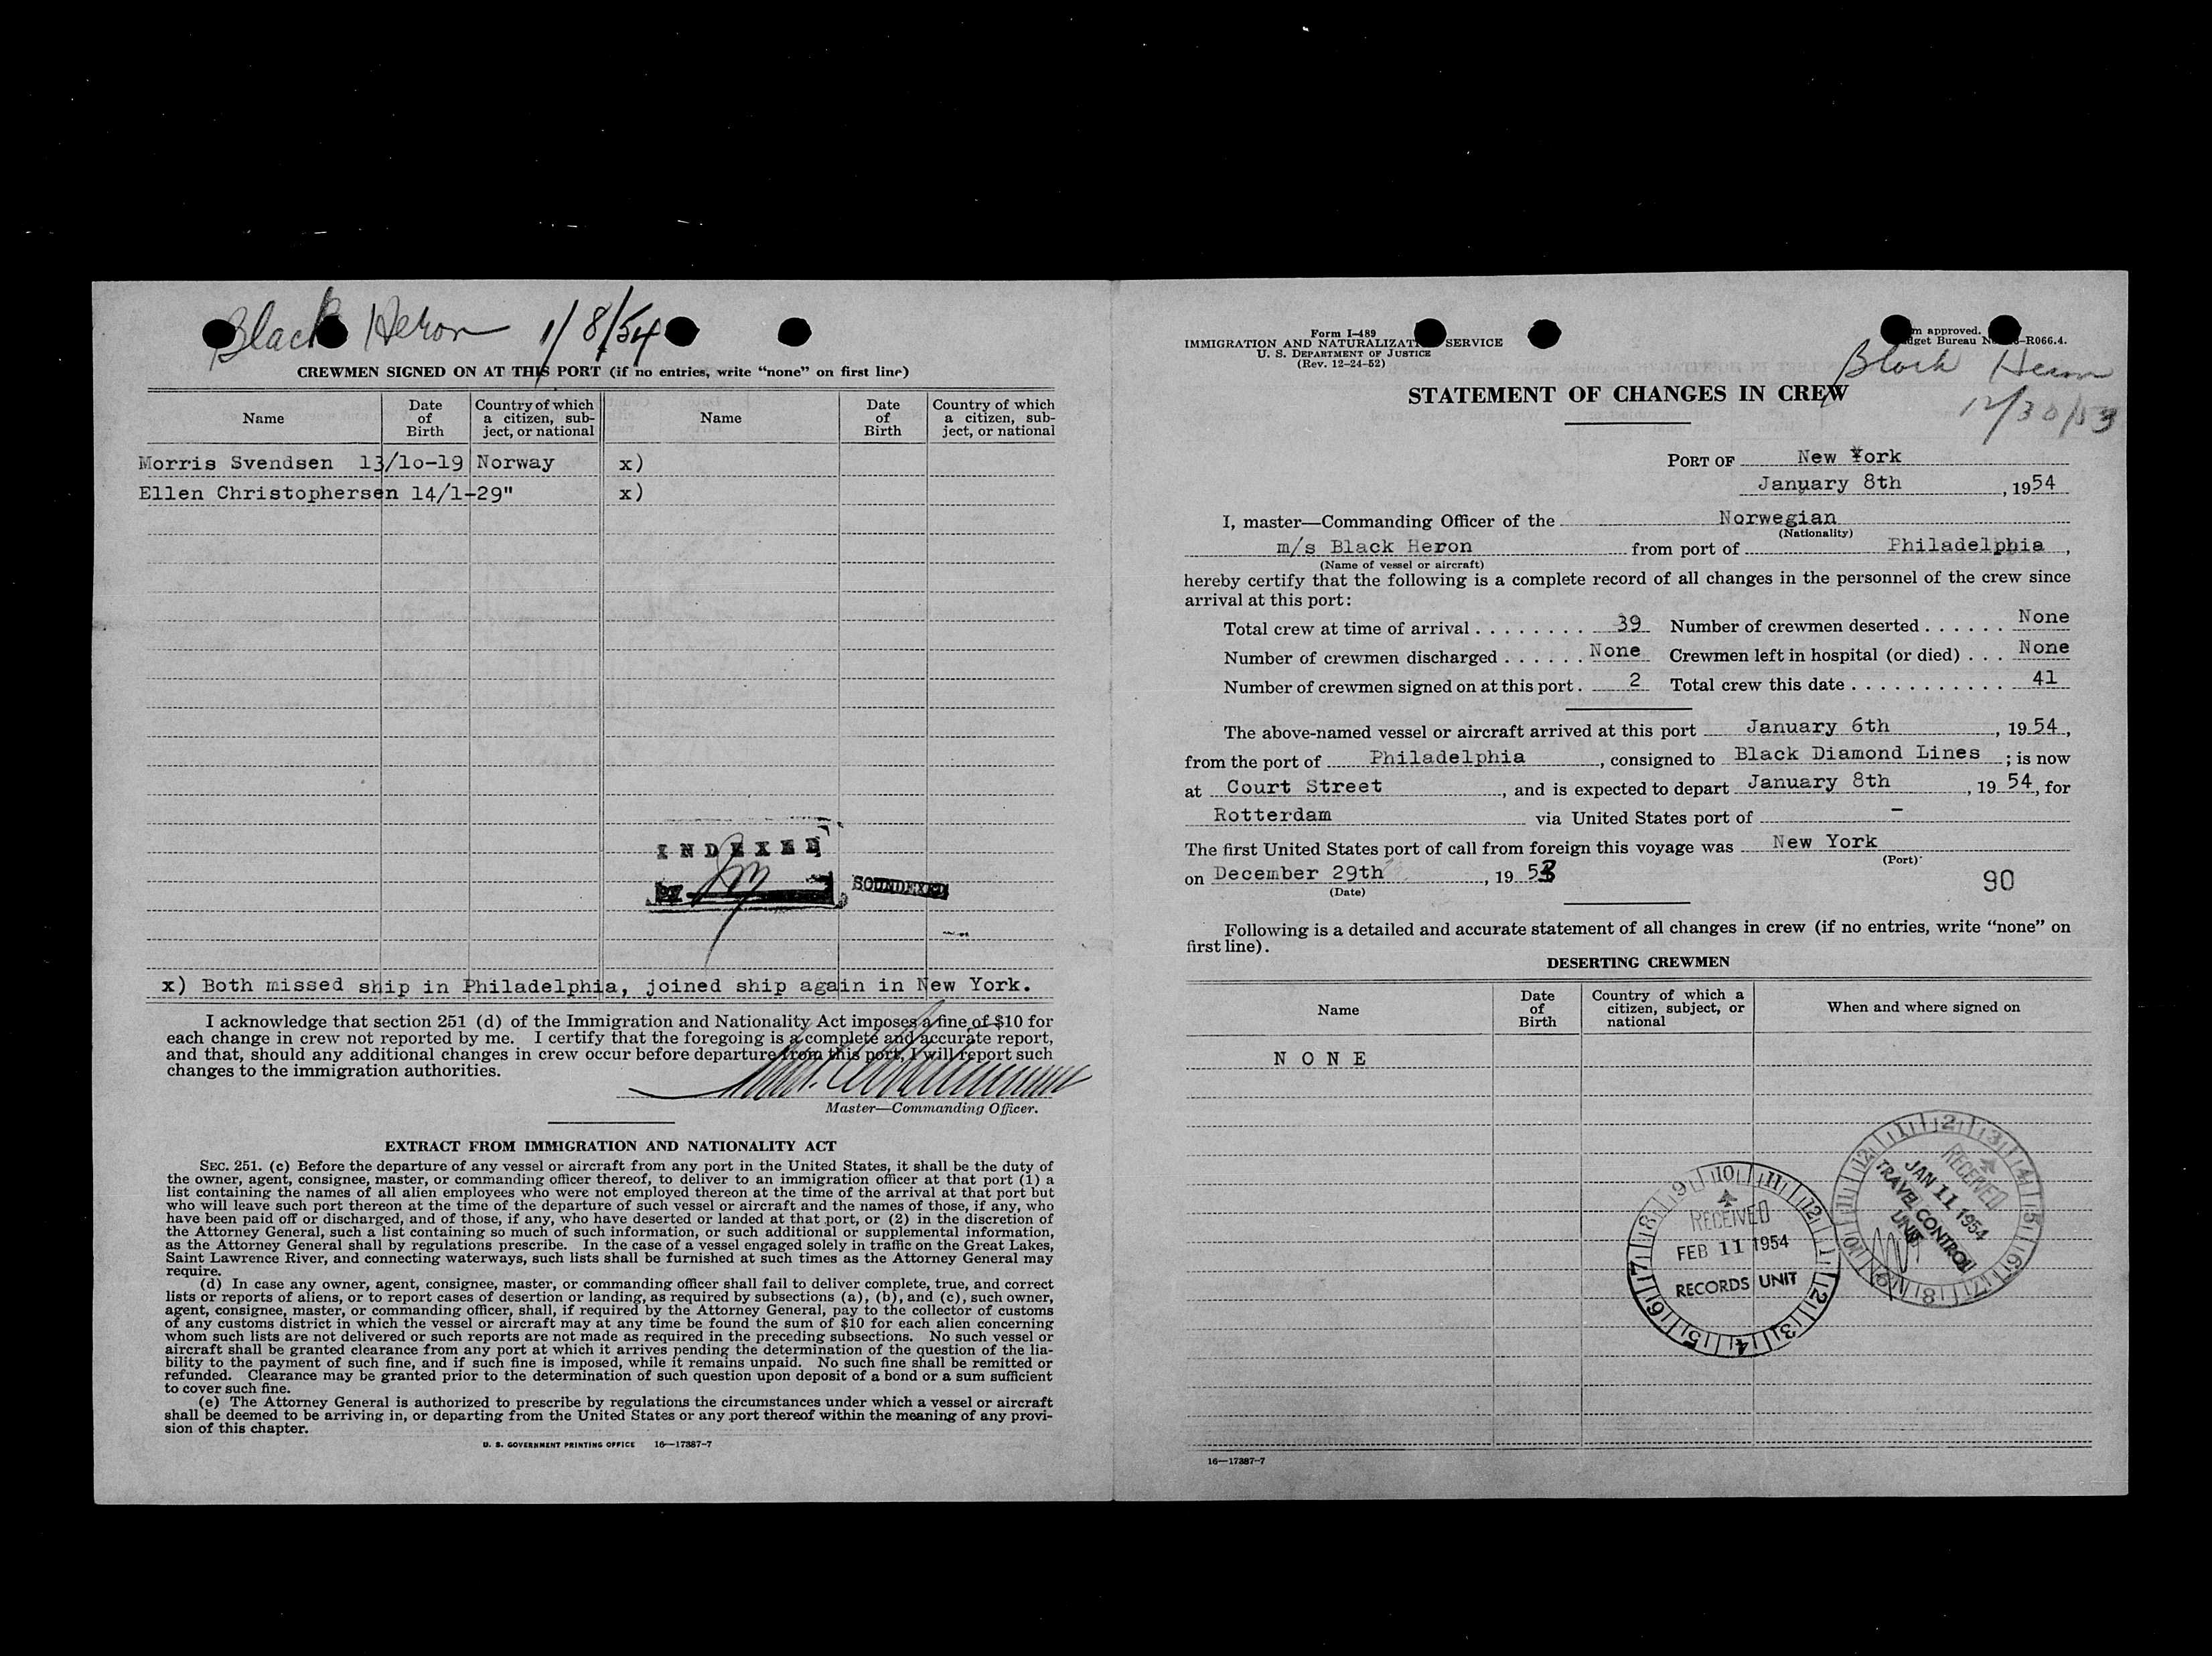 Black Heron 1/8/54
CREWMEN SIGNED ON AT THIS PORT (if no entries, write “none” on first line)
Name Date of Birth Country of which a citizen, subject, or national Name Date of Birth Country of which a citizen, subject, or national
Morris Svendsen 13/10-19 Norway x)
Ellen Christophersen 14/1-29" x)
INDEXED
BY
SOUNDEXED
x) Both missed ship in Philadelphia, joined ship again in New York.
I acknowledge that section 251 (d) of the Immigration and Nationality Act imposes a fine of $10 for
each change in crew not reported by me. I certify that the foregoing is a complete and accurate report,
and that, should any additional changes in crew occur before departure from this port, I will report such
changes to the immigration authorities.
Master—Commanding Officer.
EXTRACT FROM IMMIGRATION AND NATIONALITY ACT
SEC. 251. (c) Before the departure of any vessel or aircraft from any port in the United States, it shall be the duty of
the owner, agent, consignee, master, or commanding officer thereof, to deliver to an immigration officer at that port (1) a
list containing the names of all alien employees who were not employed thereon at the time of the arrival at that port but
who will leave such port thereon at the time of the departure of such vessel or aircraft and the names of those, if any, who
have been paid off or discharged, and of those, if any, who have deserted or landed at that port, or (2) in the discretion of
the Attorney General, such a list containing so much of such information, or such additional or supplemental information,
as the Attorney General shall by regulations prescribe. In the case of a vessel engaged solely in traffic on the Great Lakes,
Saint Lawrence River, and connecting waterways, such lists shall be furnished at such times as the Attorney General may
require.
(d) In case any owner, agent, consignee, master, or commanding officer shall fail to deliver complete, true, and correct
lists or reports of aliens, or to report cases of desertion or landing, as required by subsections (a), (b), and (c), such owner,
agent, consignee, master, or commanding officer, shall, if required by the Attorney General, pay to the collector of customs
of any customs district in which the vessel or aircraft may at any time be found the sum of $10 for each alien concerning
whom such lists are not delivered or such reports are not made as required in the preceding subsections. No such vessel or
aircraft shall be granted clearance from any port at which it arrives pending the determination of the question of the lia-
bility to the payment of such fine, and if such fine is imposed, while it remains unpaid. No such fine shall be remitted or
refunded. Clearance may be granted prior to the determination of such question upon deposit of a bond or a sum sufficient
to cover such fine.
(e) The Attorney General is authorized to prescribe by regulations the circumstances under which a vessel or aircraft
shall be deemed to be arriving in, or departing from the United States or any port thereof within the meaning of any provi-
sion of this chapter.
U. S. GOVERNMENT PRINTING OFFICE 16—17387-7
Form I-489
IMMIGRATION AND NATURALIZATION SERVICE
U. S. DEPARTMENT OF JUSTICE
(Rev. 12-24-52)
approved.
Bureau -R066.4.
Black Heron
12/30/53
STATEMENT OF CHANGES IN CREW
PORT OF New York
January 8th, 1954
I, master—Commanding Officer of the Norwegian
(Nationality)
m/s Black Heron from port of Philadelphia,
(Name of vessel or aircraft)
hereby certify that the following is a complete record of all changes in the personnel of the crew since
arrival at this port:
Total crew at time of arrival . . . . . . . . 39 Number of crewmen deserted . . . . . . None
Number of crewmen discharged . . . . . . None Crewmen left in hospital (or died) . . . None
Number of crewmen signed on at this port . 2 Total crew this date . . . . . . . . . . . 41
The above-named vessel or aircraft arrived at this port January 6th, 1954,
from the port of Philadelphia, consigned to Black Diamond Lines; is now
at Court Street, and is expected to depart January 8th, 1954, for
Rotterdam via United States port of -
The first United States port of call from foreign this voyage was New York
(Port)
on December 29th, 1953
(Date)
90
Following is a detailed and accurate statement of all changes in crew (if no entries, write “none” on
first line).
DESERTING CREWMEN
Name Date of Birth Country of which a citizen, subject, or national When and where signed on
N O N E
1 2 3 4 5 6 7 8 9 10 11 12
RECEIVED
JAN 11 1954
TRAVEL CONTROL
UNIT
9 10 11 12 1 2 3 4 5 6 7 8
RECEIVED
FEB 11 1954
RECORDS UNIT
16—17387-7